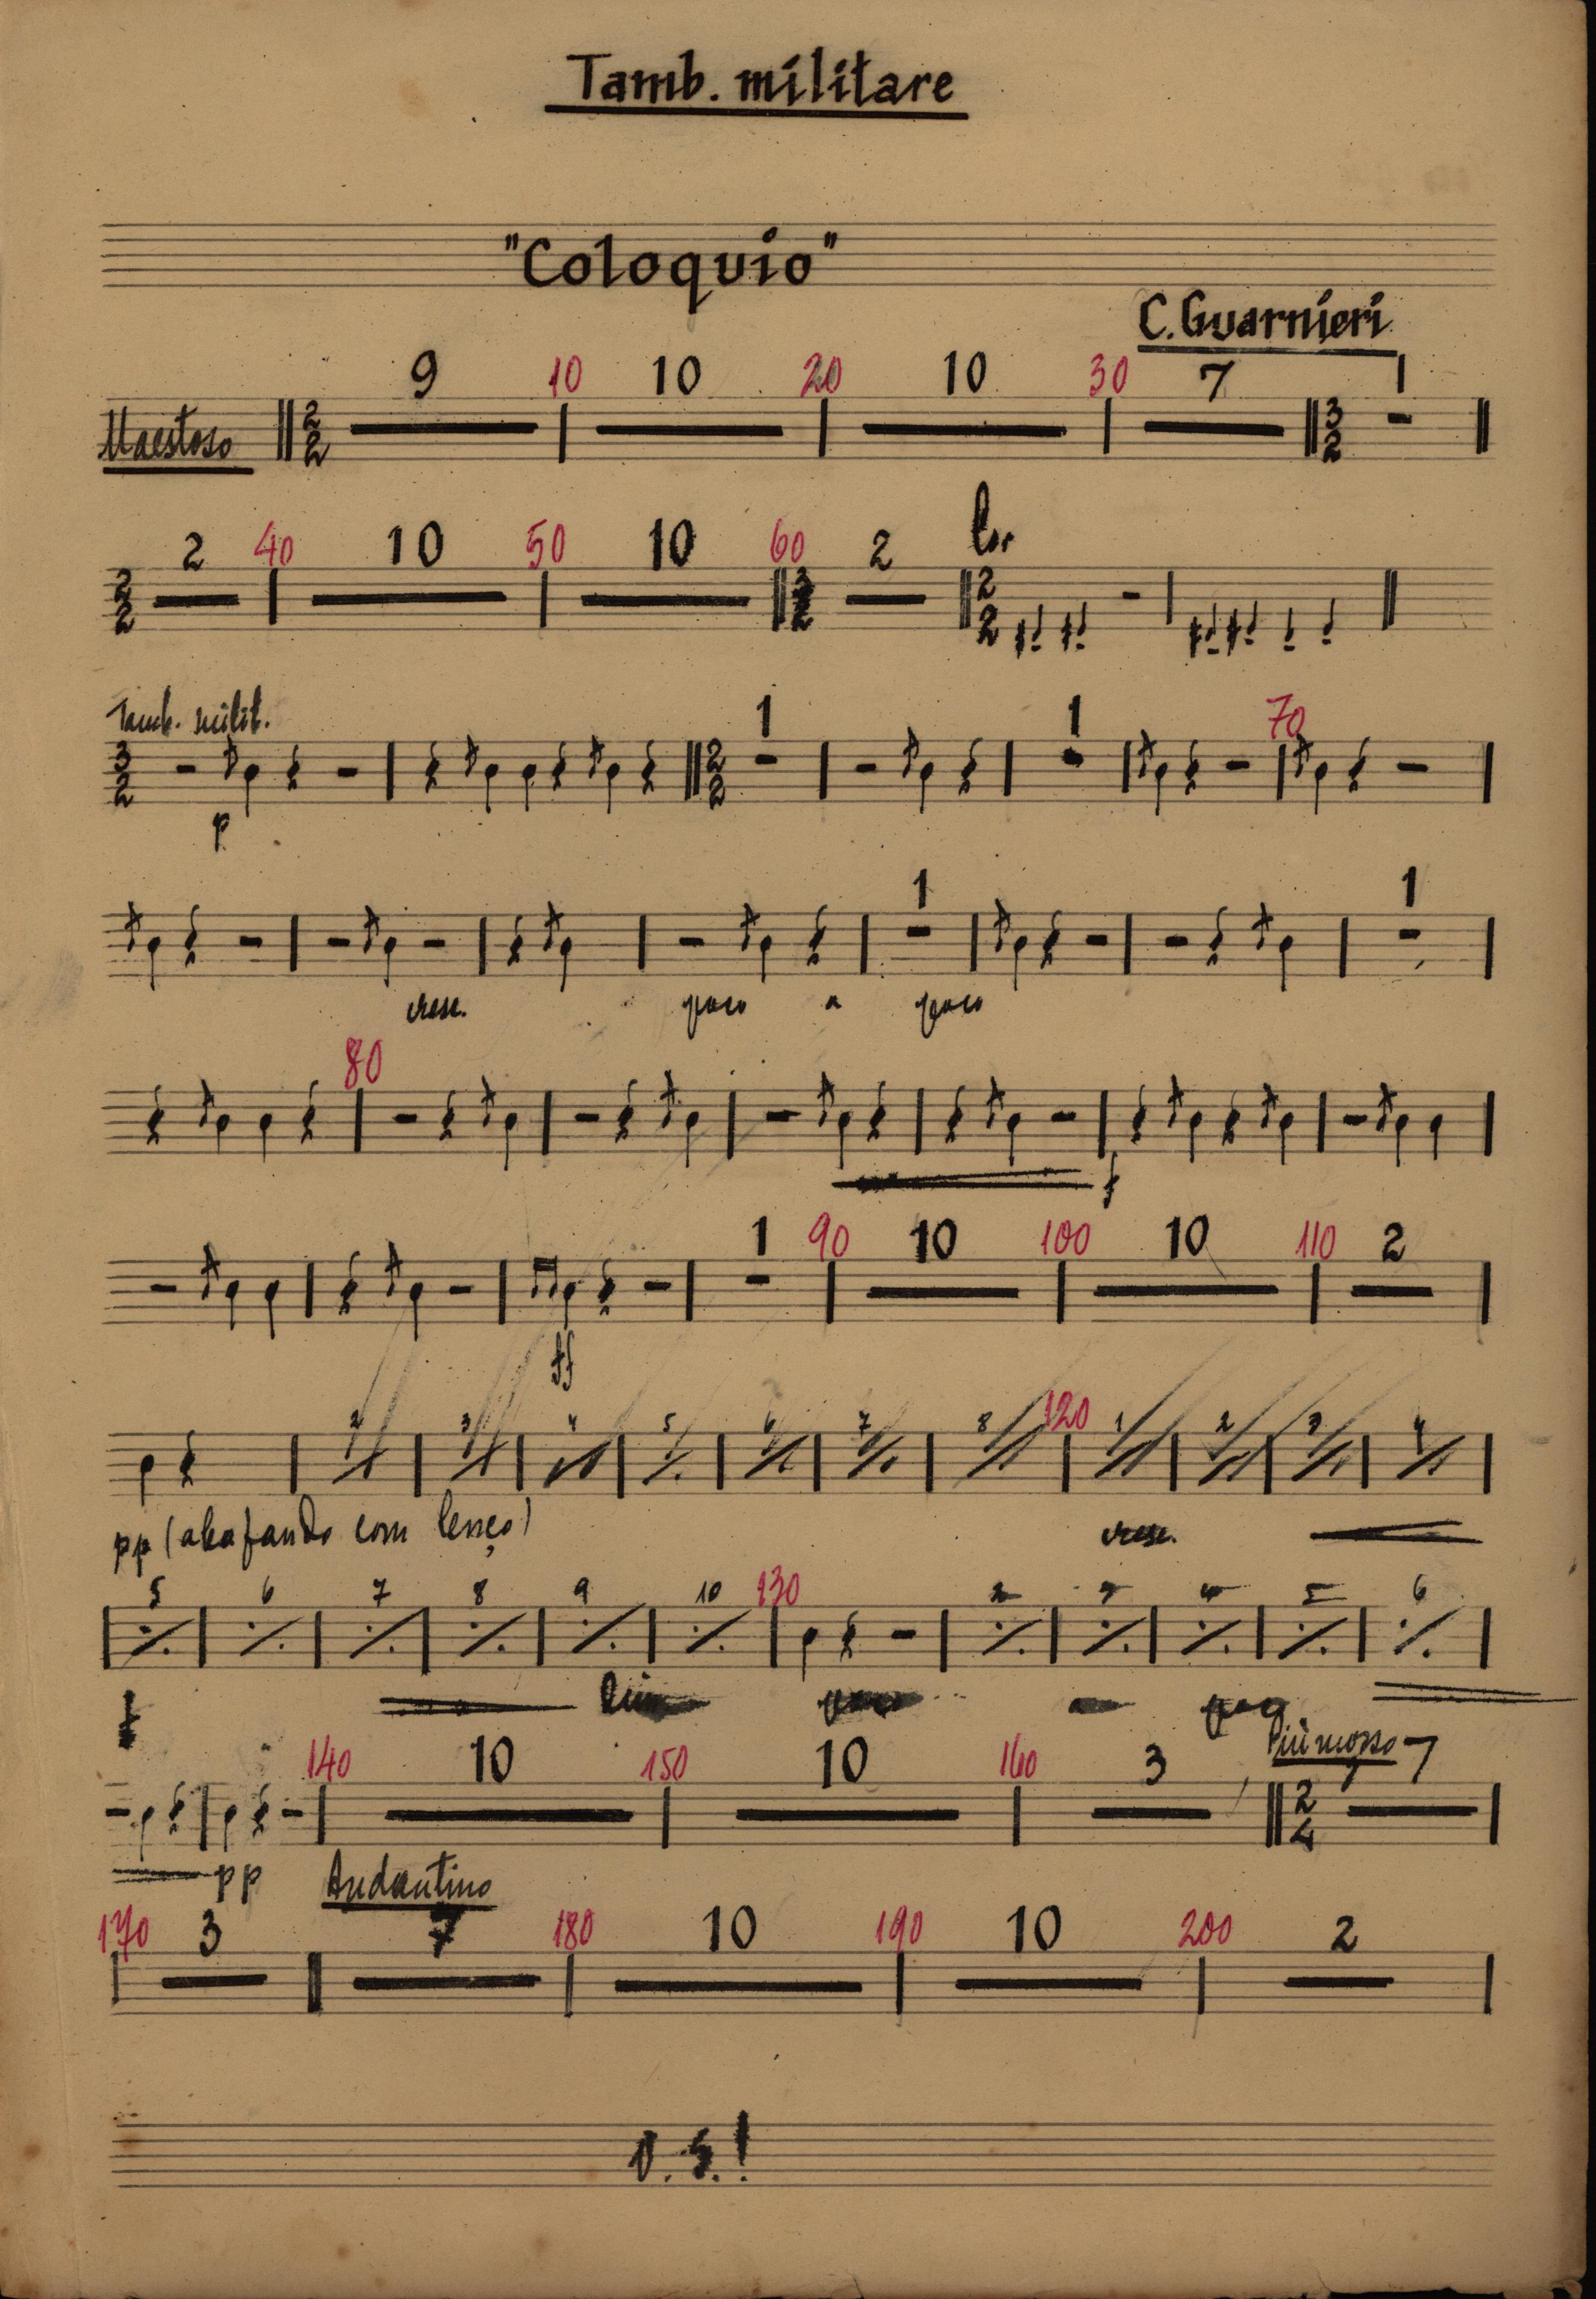 Tamb. militare
"Coloquio"
C. Guarnieri
9 10 10 20 10 30 7 1
Maestoso 2 2 3 2
2 40 10 50 10 60 2 Cor.
2 2 3 2 2 2
Tamb. milit. 1 1 70
3 2 2 2
p
1 1
cresc. poco a poco
80
f
1 90 10 100 10 110 2
ff
2 3 4 5 6 7 8 120 1 2 3 4
pp (abafando com lenço) cresc.
5 6 7 8 9 10 130 2 3 4 5 6
f Dim poco a poco
140 10 150 10 160 3 Più mosso 7
2 4
pp Andantino
170 3 7 180 10 190 10 200 2
V. S.!